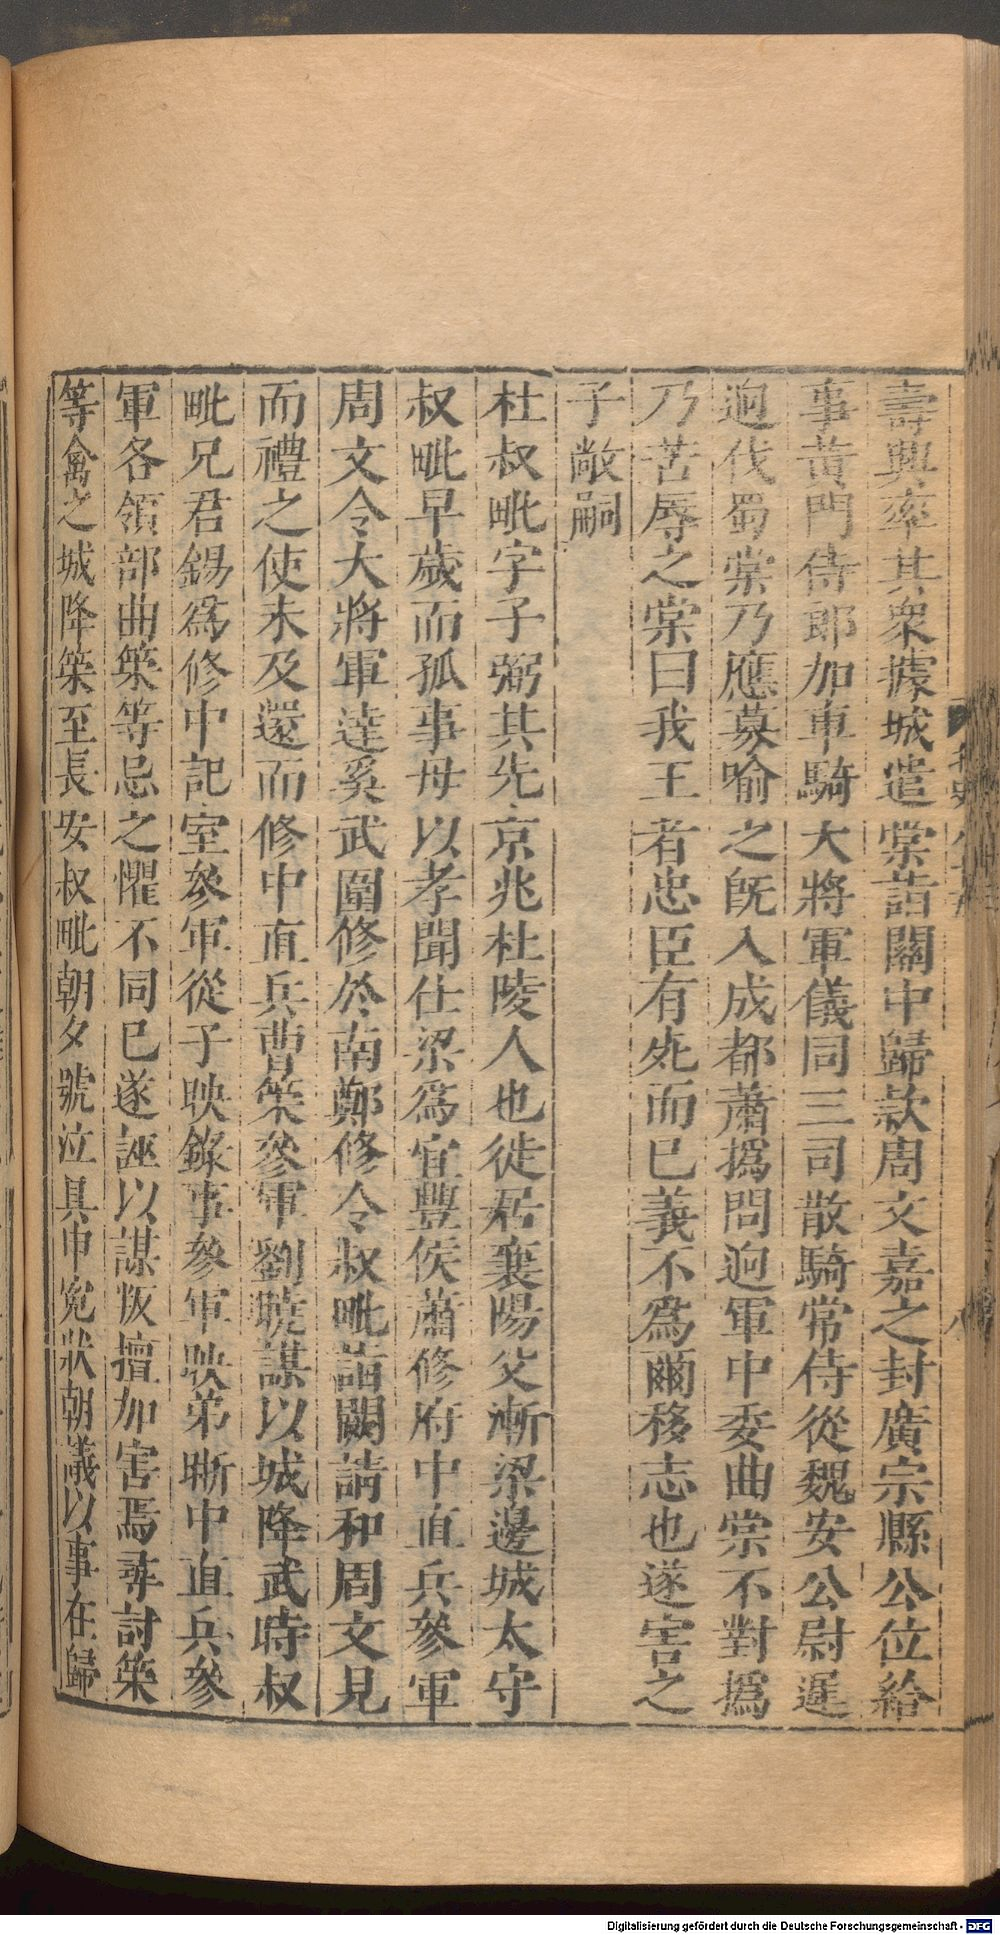 壽興率其衆據城遣棠詣關中歸款周文嘉之封廣宗縣公位給
事黃門侍郎加車騎大將軍儀同三司散騎常侍從魏安公尉遲
迥伐蜀棠乃應募喻之旣入成都蕭撝問迥軍中委曲棠不對撝
乃苦辱之棠曰我王者忠臣有死而已義不爲爾移志也遂害之
子敞嗣
杜叔毗字子弼其先京兆杜陵人也徙居襄陽父漸梁邊城太守
叔毗早歲而孤事母以孝聞仕梁爲宜豐侯蕭修府中直兵參軍
周文令大將軍達奚武圍修於南鄭修令叔毗詣闕請和周文見
而禮之使未及還而修中直兵曹策參軍劉曉謀以城降武時叔
毗兄君錫爲修中記室參軍從子映錄事參軍映弟晰中直兵參
軍各領部曲策等忌之懼不同已遂誣以謀叛擅加害焉尋討策
等禽之城降策至長安叔毗朝夕號泣具申寃狀朝議以事在歸
Digitalisierung gefördert durch die Deutsche Forschungsgemeinschaft - DFG